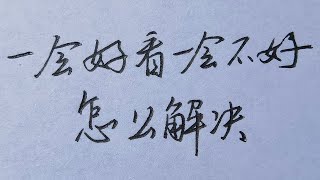 一会好看一会不好
怎么解决